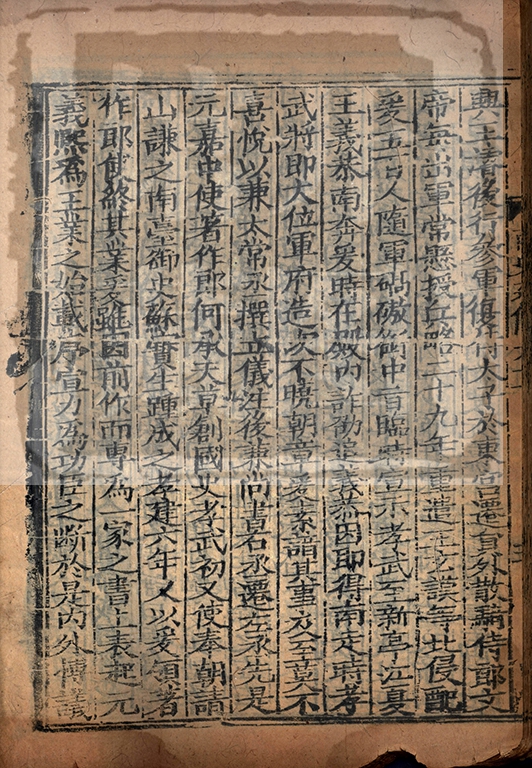 興王濬後行參軍復侍太子於東宮遷員外散騎侍郎文
帝每出軍常懸授兵略二十九年重遣王玄謨等北侵配
爰五百人隨軍碻磝銜中旨臨時宣示孝武至新亭江夏
王義恭南奔爰時在殿內詐勸追義恭因即得南走時孝
武將即大位軍府造次不曉朝章爰素諳其事及至莫不
喜悅以兼太常丞撰立儀注後兼尚書右丞遷左丞先是
元嘉中使著作郎何承天草創國史孝武初又使奉朝請
山謙之南臺御史蘇寶生踵成之孝建六年又以爰領著
作郎使終其業爰雖因前作而專為一家之書上表起元
義熙為王業之始載序宣力為功臣之斷於是內外博議